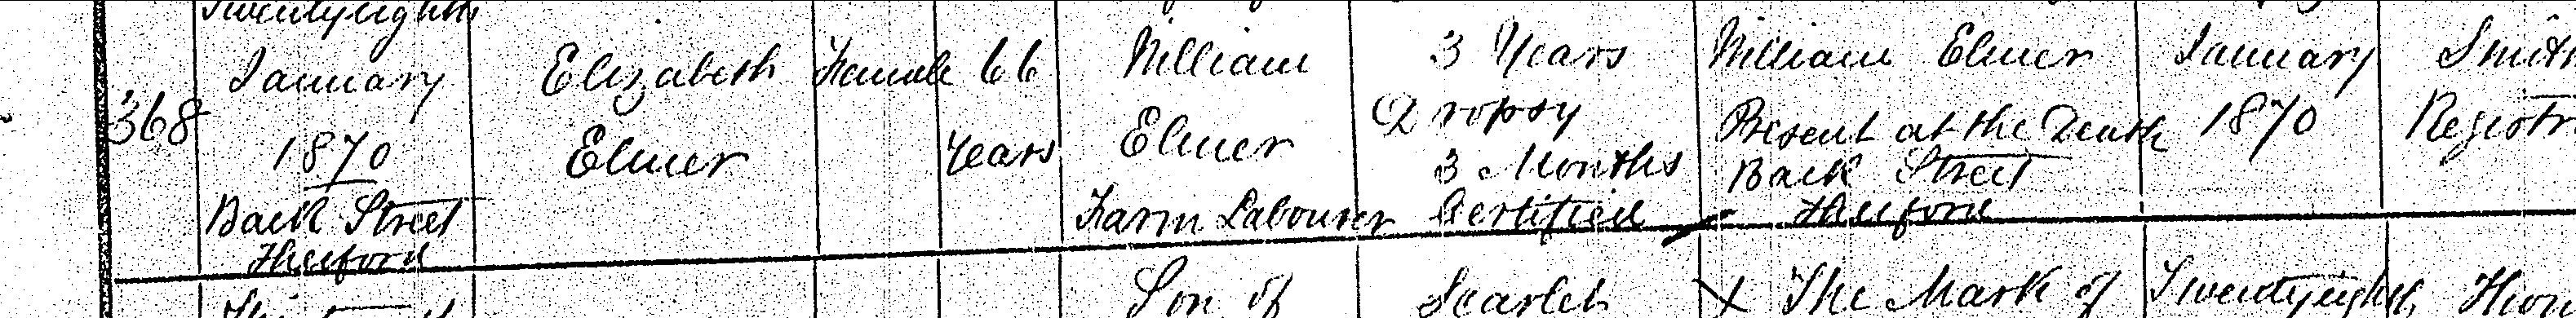 Twentyeighth
January Elizabeth Female 66 William 3 Years William Elmer January Smith
368 1870 Elmer Years Elmer Dropsy Present at the Death 1870 Registr
3 Months Back Street
Back Street Farm Labourer Certified Thetford
Thetford
Son of Scarlet X The Mark of Twentyeighth